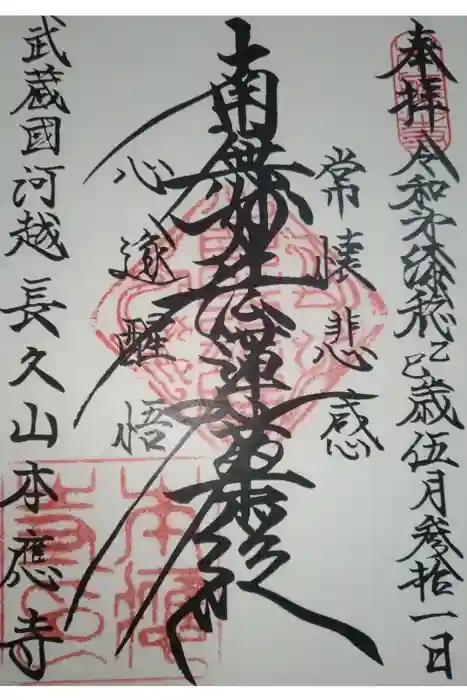 奉拝 令和㐧漆穐乙巳歳伍月参拾一日
常懐悲感
南無妙法蓮華経
心遂醒悟
武蔵國河越 長久山本應寺